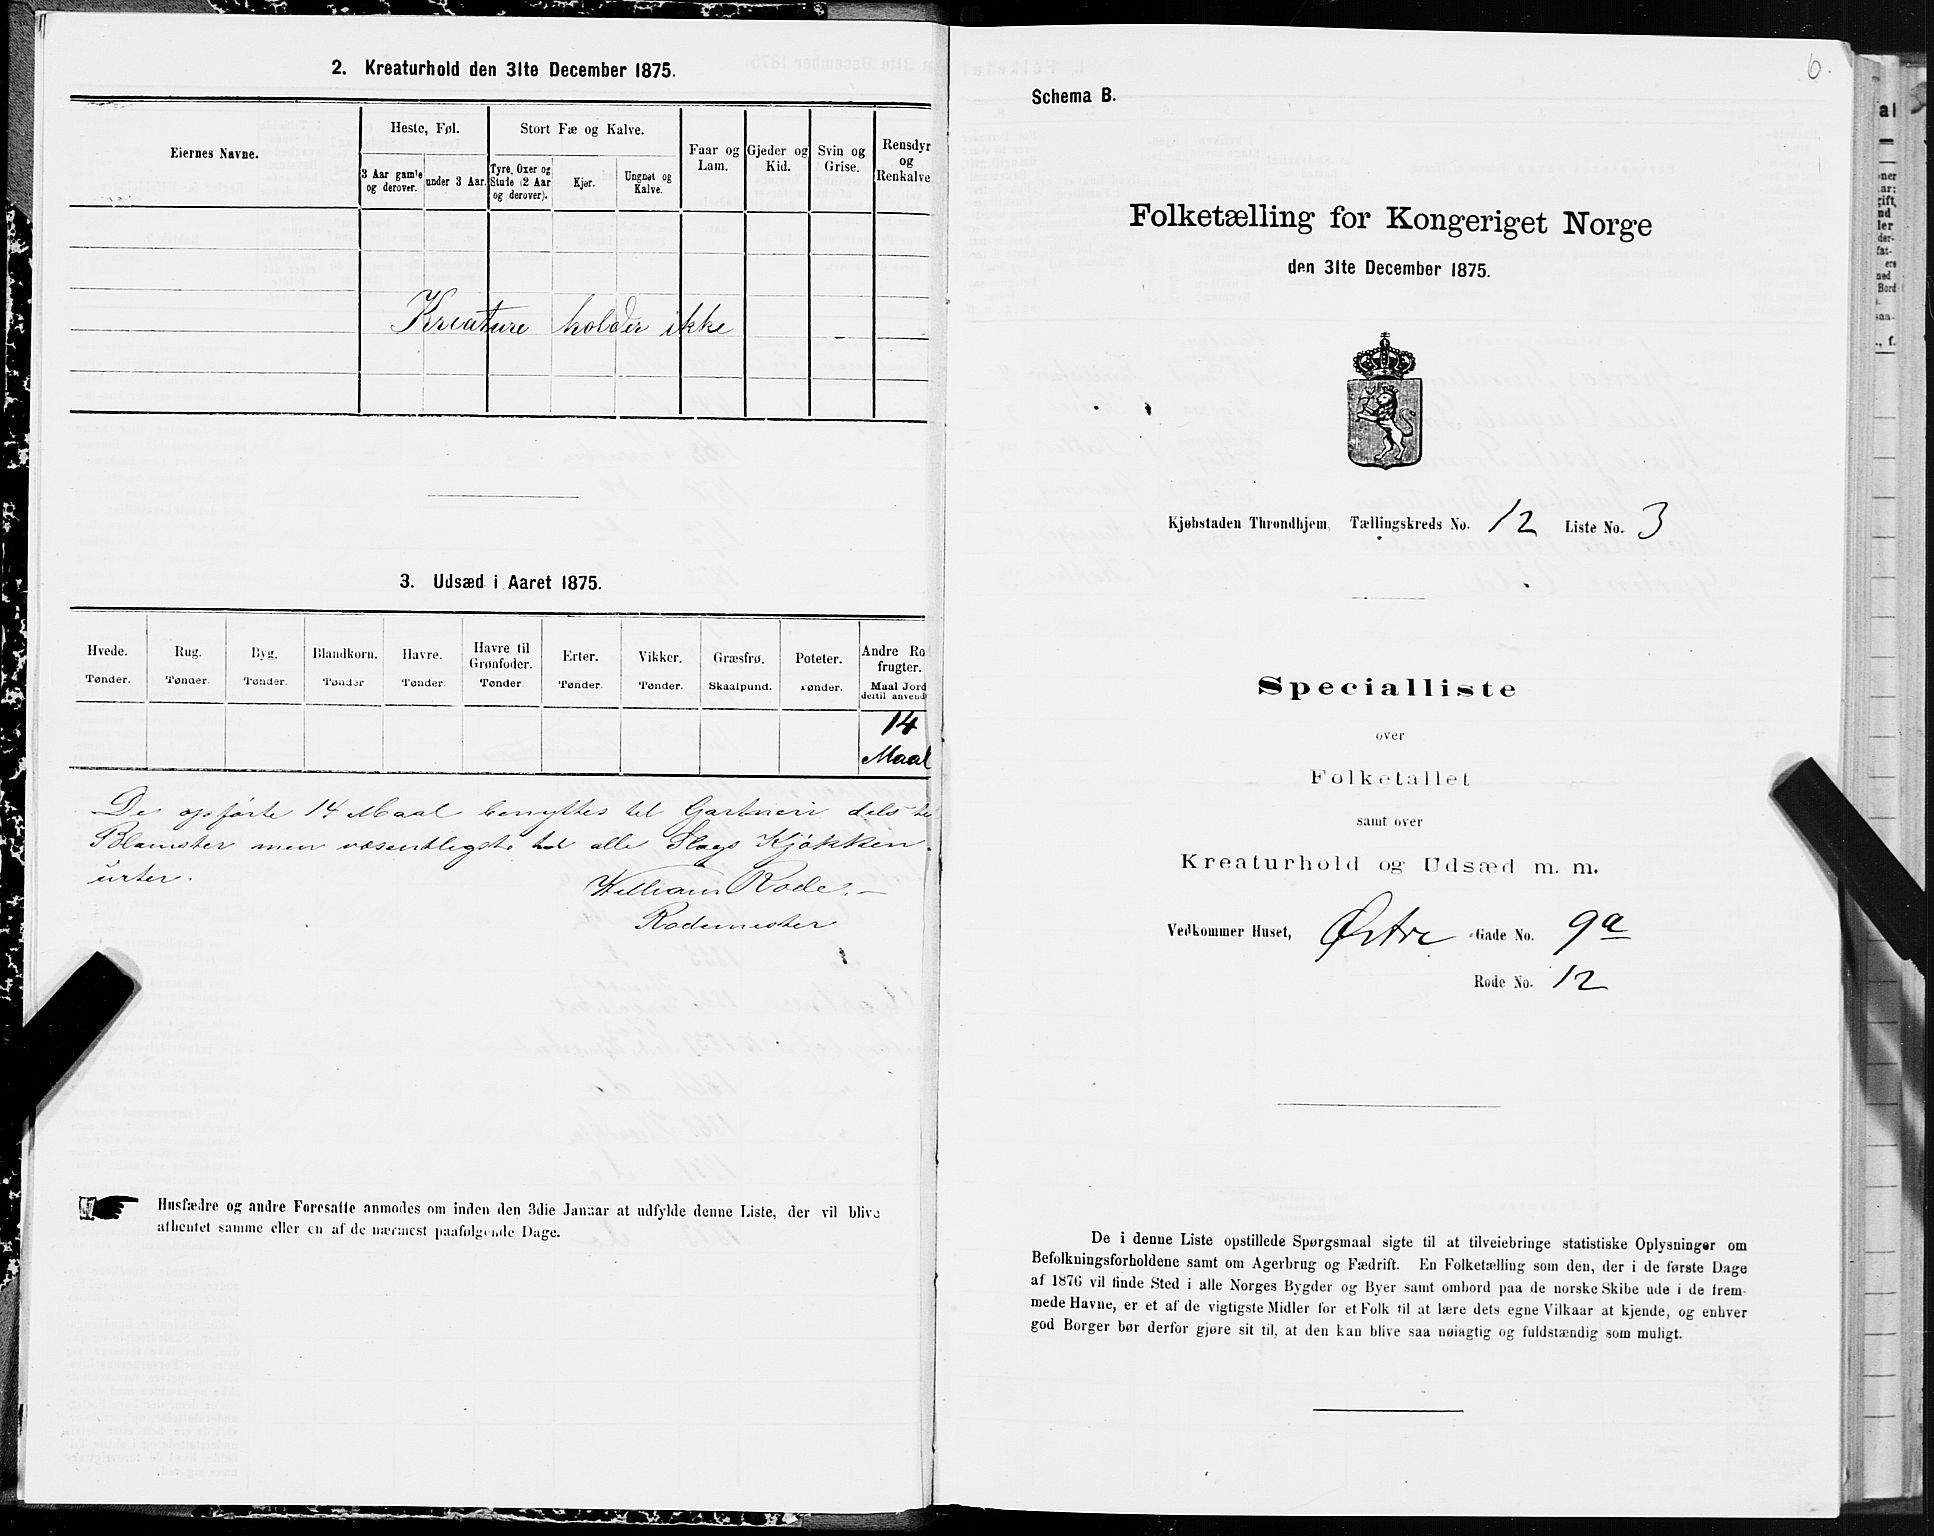 2. Kreaturhold den 31te December 1875.
Eiernes Navne.
Heste, Føl.
Stort Fæ og Kalve.
Faar og Lam.
Gjeder og Kid.
Svin og Grise.
Rensdyr og Renkalve
3 Aar gamle og derover.
under 3 Aar.
Tyre, Oxer og Stute (2 Aar og derover).
Kjør.
Ungnøt og Kalve.
Kreature holder ikke
3. Udsæd i Aaret 1875.
Hvede.
Rug.
Byg.
Blandkorn.
Havre.
Havre til Grønfoder.
Erter.
Vikker.
Græsfrø.
Poteter.
Andre Ro frugter.
Tønder.
Tønder.
Tønder.
Tønder
Tønder.
Tønder
Tønder.
Tønder.
Skaalpund.
Tønder.
Maal Jord dertil anvendt
14
Maal
De opførte 14 Maal benyttes til Gartneri dels til
Blomster men væsentligste til alle Slags Kjøkken
urter.
William Rode.
Rodemester
Husfædre og andre Foresatte anmodes om inden den 3die Januar at udfylde denne Liste, der vil blive
afhentet samme eller en af de nærmest paafølgende Dage.
6.
Schema B.
Folketælling for Kongeriget Norge
den 31te December 1875.
Kjøbstaden Throndhjem. Tællingskreds No. 12 Liste No. 3
Specialliste
over
Folketallet
samt over
Kreaturhold og Udsæd m. m.
Vedkommer Huset, Østre -Gade No. 9a
Rode No. 12
De i denne Liste opstillede Spørgsmaal sigte til at tilveiebringe statistiske Oplysninger om
Befolkningsforholdene samt om Agerbrug og Fædrift. En Folketælling som den, der i de første Dage
af 1876 vil finde Sted i alle Norges Bygder og Byer samt ombord paa de norske Skibe ude i de frem-
mede Havne, er et af de vigtigste Midler for et Folk til at lære dets egne Vilkaar at kjende, og enhver
god Borger bør derfor gjøre sit til, at den kan blive saa nøiagtig og fuldstændig som muligt.